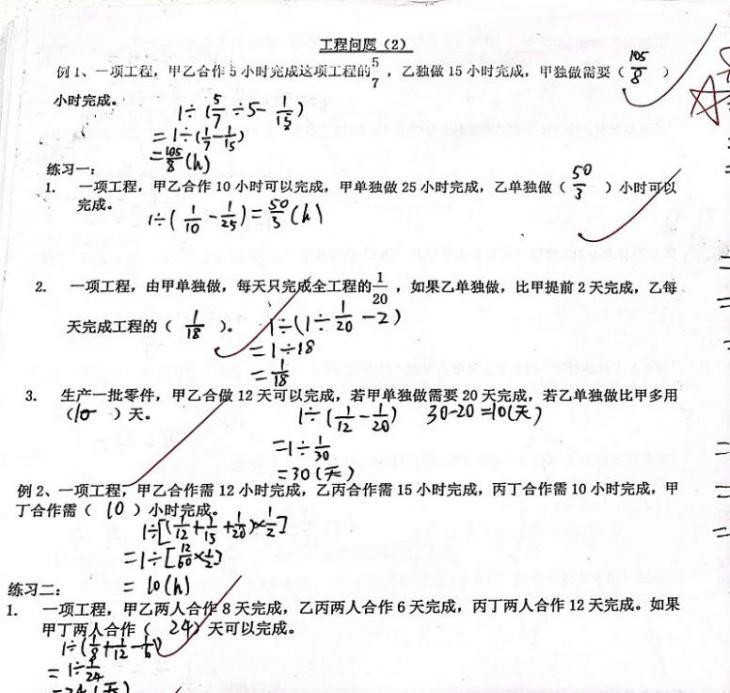 工程问题（2）
例1、一项工程，甲乙合作5小时完成这项工程的5/7，乙独做15小时完成，甲独做需要（105/8）
小时完成。
1÷(5/7÷5-1/15)
=1÷(1/7-1/15)
=105/8(h)
练习一：
1. 一项工程，甲乙合作10小时可以完成，甲单独做25小时完成，乙单独做（50/3）小时可以
完成。
1÷(1/10-1/25)=50/3(h)
2. 一项工程，由甲单独做，每天只完成全工程的1/20，如果乙单独做，比甲提前2天完成，乙每
天完成工程的（1/18）。
1÷(1÷1/20-2)
=1÷18
=1/18
3. 生产一批零件，甲乙合做12天可以完成，若甲单独做需要20天完成，若乙单独做比甲多用
（10）天。
1÷(1/12-1/20) 30-20=10(天)
=1÷1/30
=30(天)
例2、一项工程，甲乙合作需12小时完成，乙丙合作需15小时完成，丙丁合作需10小时完成，甲
丁合作需（10）小时完成。
1÷[(1/12+1/15+1/20)×1/2]
=1÷[12/60×1/2]
=10(h)
练习二：
1. 一项工程，甲乙两人合作8天完成，乙丙两人合作6天完成，丙丁两人合作12天完成。如果
甲丁两人合作（24）天可以完成。
1÷(1/8+1/12-1/6)
=1÷1/24
=24(天)